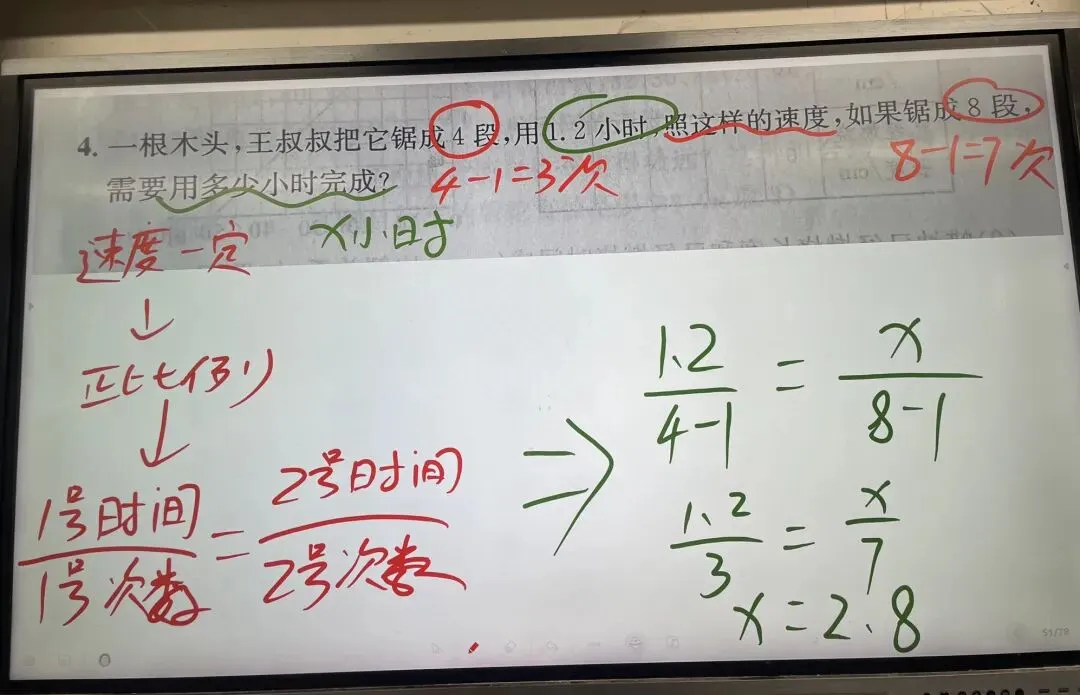 4. 一根木头,王叔叔把它锯成4段,用1.2小时,照这样的速度,如果锯成8段,
需要用多少小时完成?
4-1=3次
8-1=7次
x小时
速度一定
↓
正比例
↓
1号时间/1号次数=2号时间/2号次数
⇒
1.2/4-1=x/8-1
1.2/3=x/7
x=2.8
51/78